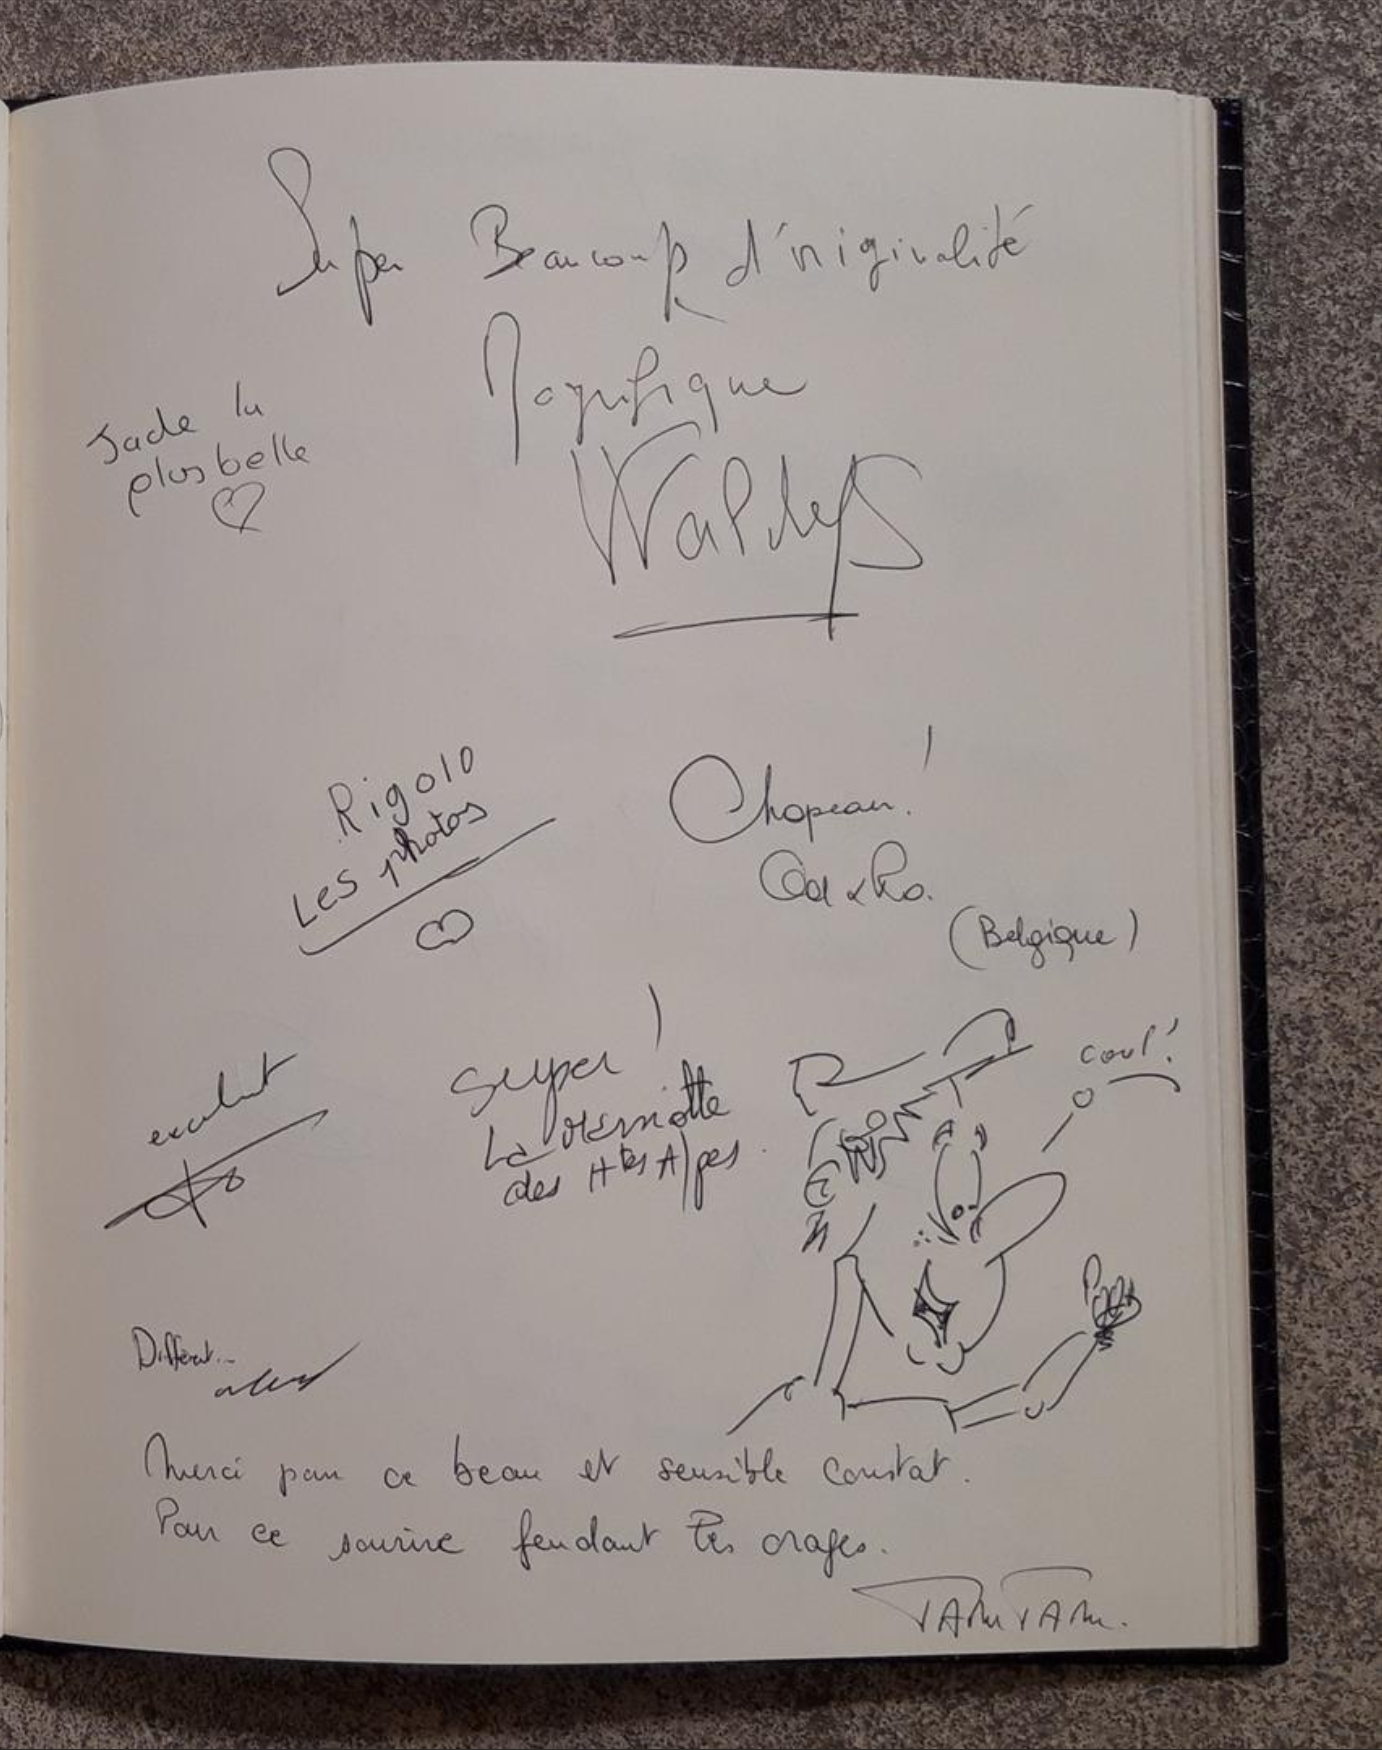 Super Beaucoup d'originalité
Magnifique
Jade la
plus belle
Waldys
Rigolo
Les photos
Chapeau!
Od & Ro.
(Belgique)
excellent
Super!
La Marmotte
des Htes Alpes.
cool!
Différent...
Merci pour ce beau et sensible constat.
Pour ce sourire fendant les orages.
TAM TAM.